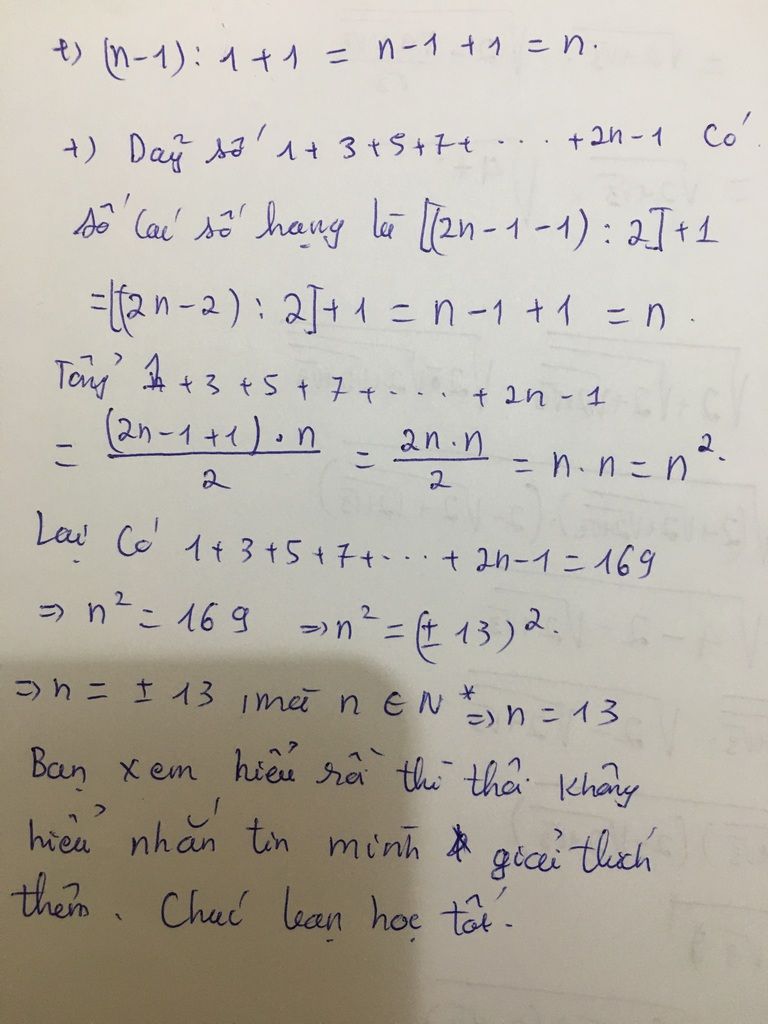 +) (n-1) : 1 + 1 = n-1+1 = n.
+) Dãy số 1 + 3 + 5 + 7 + ... + 2n - 1 Có
số các số hạng là [(2n - 1 - 1) : 2] + 1
= [(2n - 2) : 2] + 1 = n - 1 + 1 = n.
Tổng 1 + 3 + 5 + 7 + .... + 2n - 1
= \frac{(2n-1+1).n}{2} = \frac{2n.n}{2} = n.n = n².
Lại Có 1 + 3 + 5 + 7 + ... + 2n-1 = 169
⇒ n² = 169 ⇒ n² = (± 13)².
⇒ n = ± 13 , mà n ∈ N* ⇒ n = 13
Bạn xem hiểu rồi thì thôi không
hiểu nhắn tin mình giải thích
thêm. Chúc bạn học tốt.